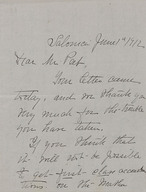 Salonica June 1st 1912
Dear Mr Peet,
Your letter came
today, and we thank you
very much for the trouble
you have taken.
If you think that
it will not be possible
to get first class accomoda
tions on the